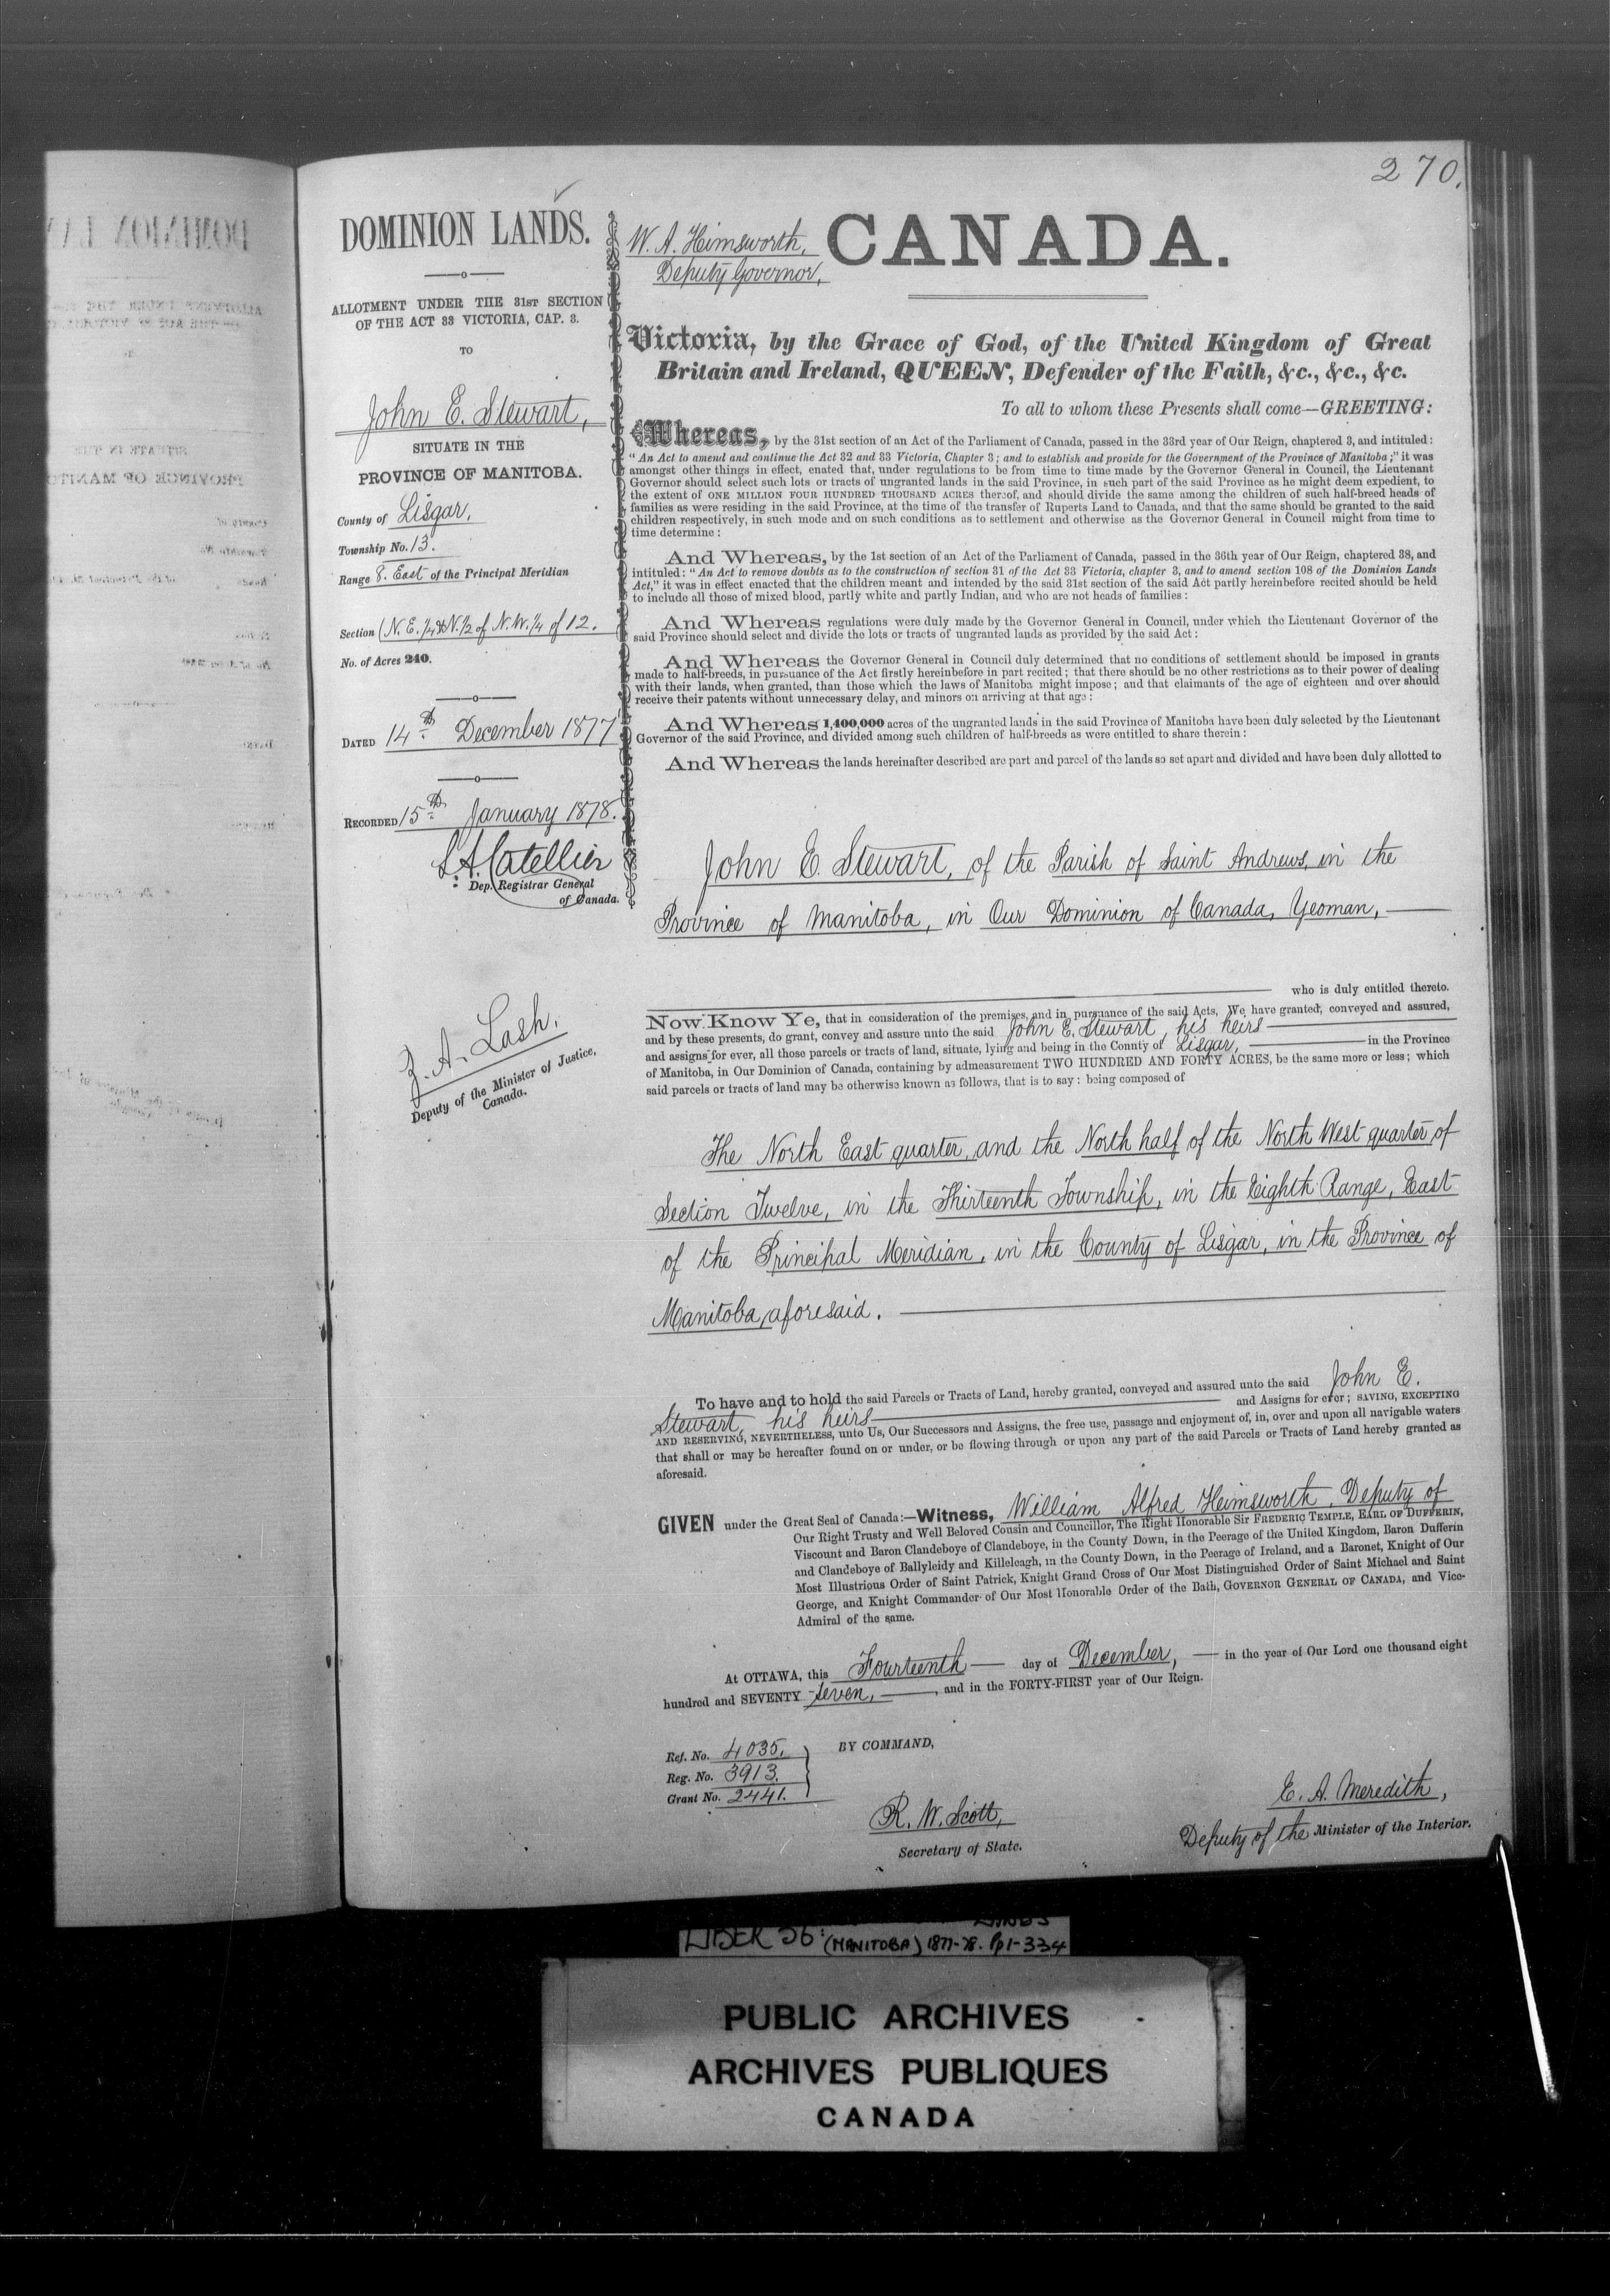 270.
DOMINION LANDS.
ALLOTMENT UNDER THE 31ST SECTION
OF THE ACT 33 VICTORIA, CAP. 3.
TO
John E. Stewart,
SITUATE IN THE
PROVINCE OF MANITOBA.
County of Lisgar,
Township No. 13.
Range 8. East of the Principal Meridian
Section (N.E. 1/4 & N. 1/2 of N.W. 1/4 of 12.
No. of Acres 240.
DATED 14th December 1877
RECORDED 15th January 1878.
L. A. Catellier
Dep. Registrar General
of Canada.
Z. A. Lash.
Deputy of the Minister of Justice,
Canada.
W. A. Himsworth,
Deputy Governor,
CANADA.
Victoria, by the Grace of God, of the United Kingdom of Great
Britain and Ireland, QUEEN, Defender of the Faith, &c., &c., &c.
To all to whom these Presents shall come—GREETING:
Whereas, by the 31st section of an Act of the Parliament of Canada, passed in the 33rd year of Our Reign, chaptered 3, and intituled:
"An Act to amend and continue the Act 32 and 33 Victoria, Chapter 3; and to establish and provide for the Government of the Province of Manitoba;" it was
amongst other things in effect, enated that, under regulations to be from time to time made by the Governor General in Council, the Lieutenant
Governor should select such lots or tracts of ungranted lands in the said Province, in such part of the said Province as he might deem expedient, to
the extent of ONE MILLION FOUR HUNDRED THOUSAND ACRES thereof, and should divide the same among the children of such half-breed heads of
families as were residing in the said Province, at the time of the transfer of Ruperts Land to Canada, and that the same should be granted to the said
children respectively, in such mode and on such conditions as to settlement and otherwise as the Governor General in Council might from time to
time determine:
And Whereas, by the 1st section of an Act of the Parliament of Canada, passed in the 36th year of Our Reign, chaptered 38, and
intituled: "An Act to remove doubts as to the construction of section 31 of the Act 33 Victoria, chapter 3, and to amend section 108 of the Dominion Lands
Act," it was in effect enacted that the children meant and intended by the said 31st section of the said Act partly hereinbefore recited should be held
to include all those of mixed blood, partly white and partly Indian, and who are not heads of families:
And Whereas regulations were duly made by the Governor General in Council, under which the Lieutenant Governor of the
said Province should select and divide the lots or tracts of ungranted lands as provided by the said Act:
And Whereas the Governor General in Council duly determined that no conditions of settlement should be imposed in grants
made to half-breeds, in pursuance of the Act firstly hereinbefore in part recited; that there should be no other restrictions as to their power of dealing
with their lands, when granted, than those which the laws of Manitoba might impose; and that claimants of the age of eighteen and over should
receive their patents without unnecessary delay, and minors on arriving at that age:
And Whereas 1,400,000 acres of the ungranted lands in the said Province of Manitoba have been duly selected by the Lieutenant
Governor of the said Province, and divided among such children of half-breeds as were entitled to share therein:
And Whereas the lands hereinafter described are part and parcel of the lands so set apart and divided and have been duly allotted to
John E. Stewart, of the Parish of Saint Andrews, in the
Province of Manitoba, in Our Dominion of Canada, Yeoman,
who is duly entitled thereto.
Now Know Ye, that in consideration of the premises, and in pursuance of the said Acts, We have granted, conveyed and assured,
and by these presents, do grant, convey and assure unto the said John E. Stewart, his heirs
and assigns for ever, all those parcels or tracts of land, situate, lying and being in the County of Lisgar, in the Province
of Manitoba, in Our Dominion of Canada, containing by admeasurement TWO HUNDRED AND FORTY ACRES, be the same more or less; which
said parcels or tracts of land may be otherwise known as follows, that is to say: being composed of
The North East quarter, and the North half of the North West quarter, of
Section Twelve, in the Thirteenth Township, in the Eighth Range, East
of the Principal Meridian, in the County of Lisgar, in the Province of
Manitoba, aforesaid.
To have and to hold the said Parcels or Tracts of Land, hereby granted, conveyed and assured unto the said John E.
Stewart, his heirs and Assigns for ever; SAVING, EXCEPTING
AND RESERVING, NEVERTHELESS, unto Us, Our Successors and Assigns, the free use, passage and enjoyment of, in, over and upon all navigable waters
that shall or may be hereafter found on or under, or be flowing through or upon any part of the said Parcels or Tracts of Land hereby granted as
aforesaid.
GIVEN under the Great Seal of Canada:—Witness, William Alfred Himsworth, Deputy of
Our Right Trusty and Well Beloved Cousin and Councillor, The Right Honorable Sir FREDERIC TEMPLE, EARL OF DUFFERIN,
Viscount and Baron Clandeboye of Clandeboye, in the County Down, in the Peerage of the United Kingdom, Baron Dufferin
and Clandeboye of Ballyleidy and Killeleagh, in the County Down, in the Peerage of Ireland, and a Baronet, Knight of Our
Most Illustrious Order of Saint Patrick, Knight Grand Cross of Our Most Distinguished Order of Saint Michael and Saint
George, and Knight Commander of Our Most Honorable Order of the Bath, GOVERNOR GENERAL OF CANADA, and Vice-
Admiral of the same.
At OTTAWA, this Fourteenth day of December, in the year of Our Lord one thousand eight
hundred and SEVENTY-seven, and in the FORTY-FIRST year of Our Reign.
Ref. No. 4035.
Reg. No. 3913.
Grant No. 2441.
BY COMMAND,
R. W. Scott,
Secretary of State.
E. A. Meredith,
Deputy of the Minister of the Interior.
LIBER 56: LANDS
(MANITOBA) 1877-78. Pp1-334
PUBLIC ARCHIVES
ARCHIVES PUBLIQUES
CANADA